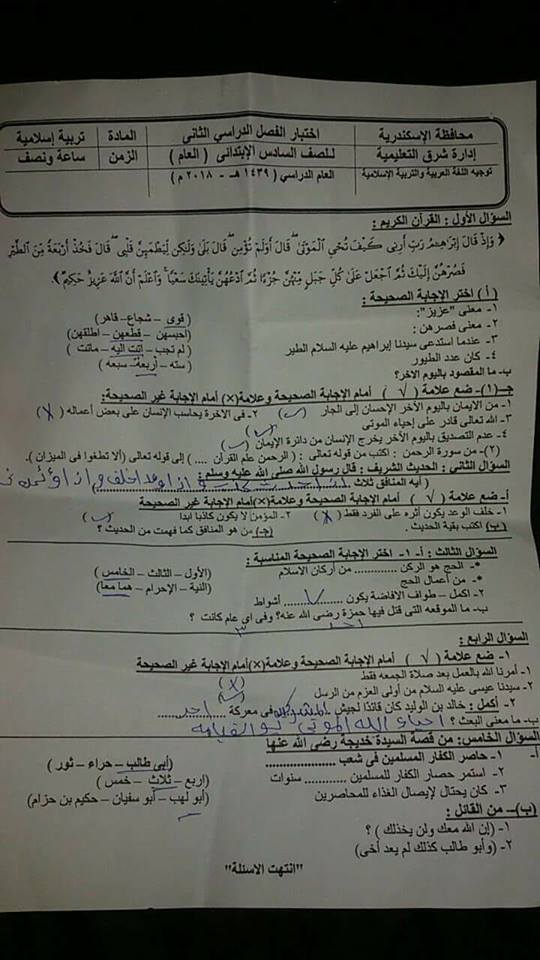 محافظة الإسكندرية
إدارة شرق التعليمية
توجيه اللغة العربية والتربية الإسلامية
اختبار الفصل الدراسي الثاني
للصف السادس الإبتدائى ( العام )
العام الدراسي ( ١٤٣٩ هـ - ٢٠١٨ م )
المادة
تربية إسلامية
الزمن
ساعة ونصف
السؤال الأول : القرآن الكريم :
﴿ وَإِذْ قَالَ إِبْرَاهِيمُ رَبِّ أَرِنِي كَيْفَ تُحْيِ الْمَوْتَىٰ قَالَ أَوَلَمْ تُؤْمِن قَالَ بَلَىٰ وَلَٰكِن لِّيَطْمَئِنَّ قَلْبِي قَالَ فَخُذْ أَرْبَعَةً مِّنَ الطَّيْرِ
فَصُرْهُنَّ إِلَيْكَ ثُمَّ اجْعَلْ عَلَىٰ كُلِّ جَبَلٍ مِّنْهُنَّ جُزْءًا ثُمَّ ادْعُهُنَّ يَأْتِينَكَ سَعْيًا وَاعْلَمْ أَنَّ اللَّهَ عَزِيزٌ حَكِيمٌ ﴾.
( أ ) اختر الإجابة الصحيحة :
١- معنى "عزيز": ( قوى – شجاع- قاهر)
٢- معنى فصرهن : (احبسهن – قطعهن – اطلقهن)
٣- عندما استدعى سيدنا إبراهيم عليه السلام الطير ( لم تجب – اتت اليه – ماتت )
٤- كان عدد الطيور ( سته – أربعة– سبعه )
ب- ما المقصود باليوم الاخر؟
جـ-(١)- ضع علامة ( √ ) أمام الإجابة الصحيحة وعلامة(×) أمام الإجابة غير الصحيحة:
١- من الايمان باليوم الأخر الإحسان إلى الجار ( ) ٢- فى الاخرة يحاسب الإنسان على بعض أعماله ( X )
٣- الله تعالى قادر على إحياء الموتى ( )
٤- عدم التصديق باليوم الأخر يخرج الإنسان من دائرة الإيمان ( )
(٢)- من سورة الرحمن : اكتب من قوله تعالى : ( الرحمن علم القرآن .... ) إلى قوله تعالى (ألا تطغوا فى الميزان ).
السؤال الثانى : الحديث الشريف : قال رسول الله صلي الله عليه وسلم :
( أيه المنافق ثلاث اذا حدث كذب واذا وعد اخلف واذا اؤتمن خان )
أ- ضع علامة ( √ ) أمام الإجابة الصحيحة وعلامة(×)أمام الإجابة غير الصحيحة
١- خلف الوعد يكون أثره على الفرد فقط ( X ) ٢- المؤمن لا يكون كاذبا أبدا ( )
(ب) اكتب بقية الحديث . (جـ) من هو المنافق كما فهمت من الحديث ؟
السؤال الثالث : أ- ١- اختر الإجابة الصحيحة المناسبة :
*- الحج هو الركن ............ من أركان الاسلام (الأول – الثالث – الخامس )
*- من أعمال الحج (النية – الإحرام – هما معا)
٢- اكمل – طواف الافاضة يكون ....٧.... أشواط
ب- ما الموقعه التى قتل فيها حمزة رضى الله عنه؟ وفى اي عام كانت ؟
احد ٣
السؤال الرابع :
١- ضع علامة ( √ ) أمام الإجابة الصحيحة وعلامة(×)أمام الإجابة غير الصحيحة
١- أمرنا الله بالعمل بعد صلاة الجمعه فقط ( X )
٢- سيدنا عيسى عليه السلام من أولى العزم من الرسل ( )
٢- أكمل : خالد بن الوليد كان قائدًا لجيش المشركين فى معركة احد
ب- ما معنى البعث ؟ احياء الله الموتى يوم القيامه
السؤال الخامس: من قصة السيدة خديجة رضى الله عنها
أ- ١- حاصر الكفار المسلمين فى شعب ............ (أبى طالب – حراء – ثور )
٢- استمر حصار الكفار للمسلمين ............ سنوات (اربع – ثلاث – خمس )
٣- كان يحتال لإيصال الغذاء للمحاصرين (أبو لهب – أبو سفيان – حكيم بن حزام)
(ب)- من القائل :
١- (إن الله معك ولن يخذلك ) ؟
٢- (وأبو طالب كذلك لم يعد أخى)
"انتهت الاسئلة"